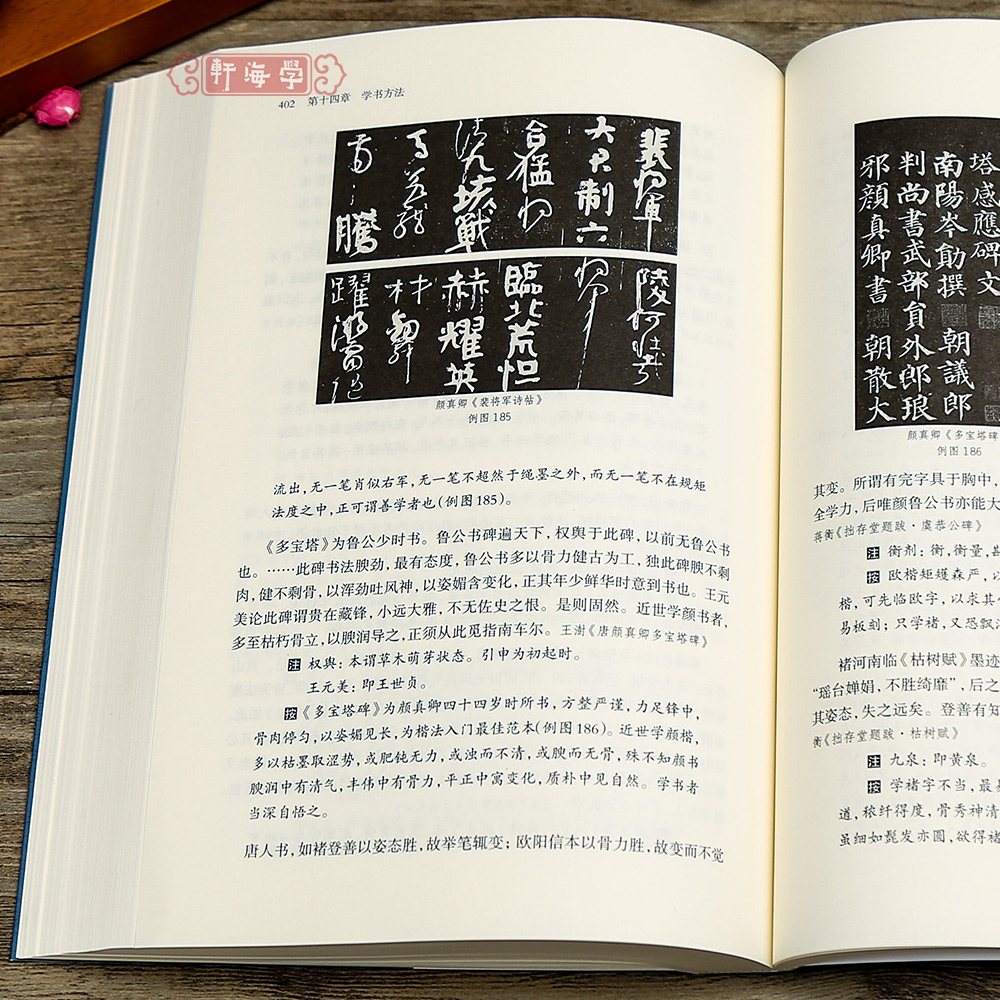 軒海学
402 第十四章 学书方法
裴将軍
大君制六
合猛将
清九垓戰
馬若龍
虎
騰
陵何壮哉
将軍
臨北荒怛
赫耀英
材劍舞
躍游電随
颜真卿《裴将军诗帖》
例图185
流出，无一笔肖似右军，无一笔不超然于绳墨之外，而无一笔不在规矩
法度之中，正可谓善学者也(例图185)。
《多宝塔》为鲁公少时书。鲁公书碑遍天下，权舆于此碑，以前无鲁公书
也。……此碑书法腴劲，最有态度，鲁公书多以骨力健古为工，独此碑腴不剩
肉，健不剩骨，以浑劲吐风神，以姿媚含变化，正其年少鲜华时意到书也。王元
美论此碑谓贵在藏锋，小远大雅，不无佐史之恨。是则固然。近世学颜书者，
多至枯朽骨立，以腴润导之，正须从此觅指南车尔。王澍《唐颜真卿多宝塔碑》
注 权舆：本谓草木萌芽状态。引申为初起时。
王元美：即王世贞。
按《多宝塔碑》为颜真卿四十四岁时所书，方整严谨，力足锋中，
骨肉停匀，以姿媚见长，为楷法入门最佳范本(例图186)。近世学颜楷，
多以枯墨取涩势，或肥钝无力，或浊而不清，或腴而无骨，殊不知颜书
腴润中有清气，丰伟中有骨力，平正中寓变化，质朴中见自然。学书者
当深自悟之。
唐人书，如褚登善以姿态胜，故举笔辄变；欧阳信本以骨力胜，故变而不觉
塔感應碑文
南陽岑勛撰 朝議郎
判尚書武部員外郎琅
邪顏真卿書 朝散大
颜真卿《多宝塔碑
例图186
其变。所谓有完字具于胸中，
全学力，后唯颜鲁公书亦能大
蒋衡《拙存堂题跋·虞恭公碑》
注 衡剂：衡，衡量，甚
按 欧楷矩矱森严，以
楷，可先临欧字，以求其
易板刻；只学褚，又恐飘
褚河南临《枯树赋》墨迹
“瑶台婵娟，不胜绮靡”，后之
其姿态，失之远矣。登善有知
衡《拙存堂题跋·枯树赋》
注 九泉：即黄泉。
按 学褚字不当，最易
道，秾纤得度，骨秀神清
虽细如髭发亦圆，欲得褚